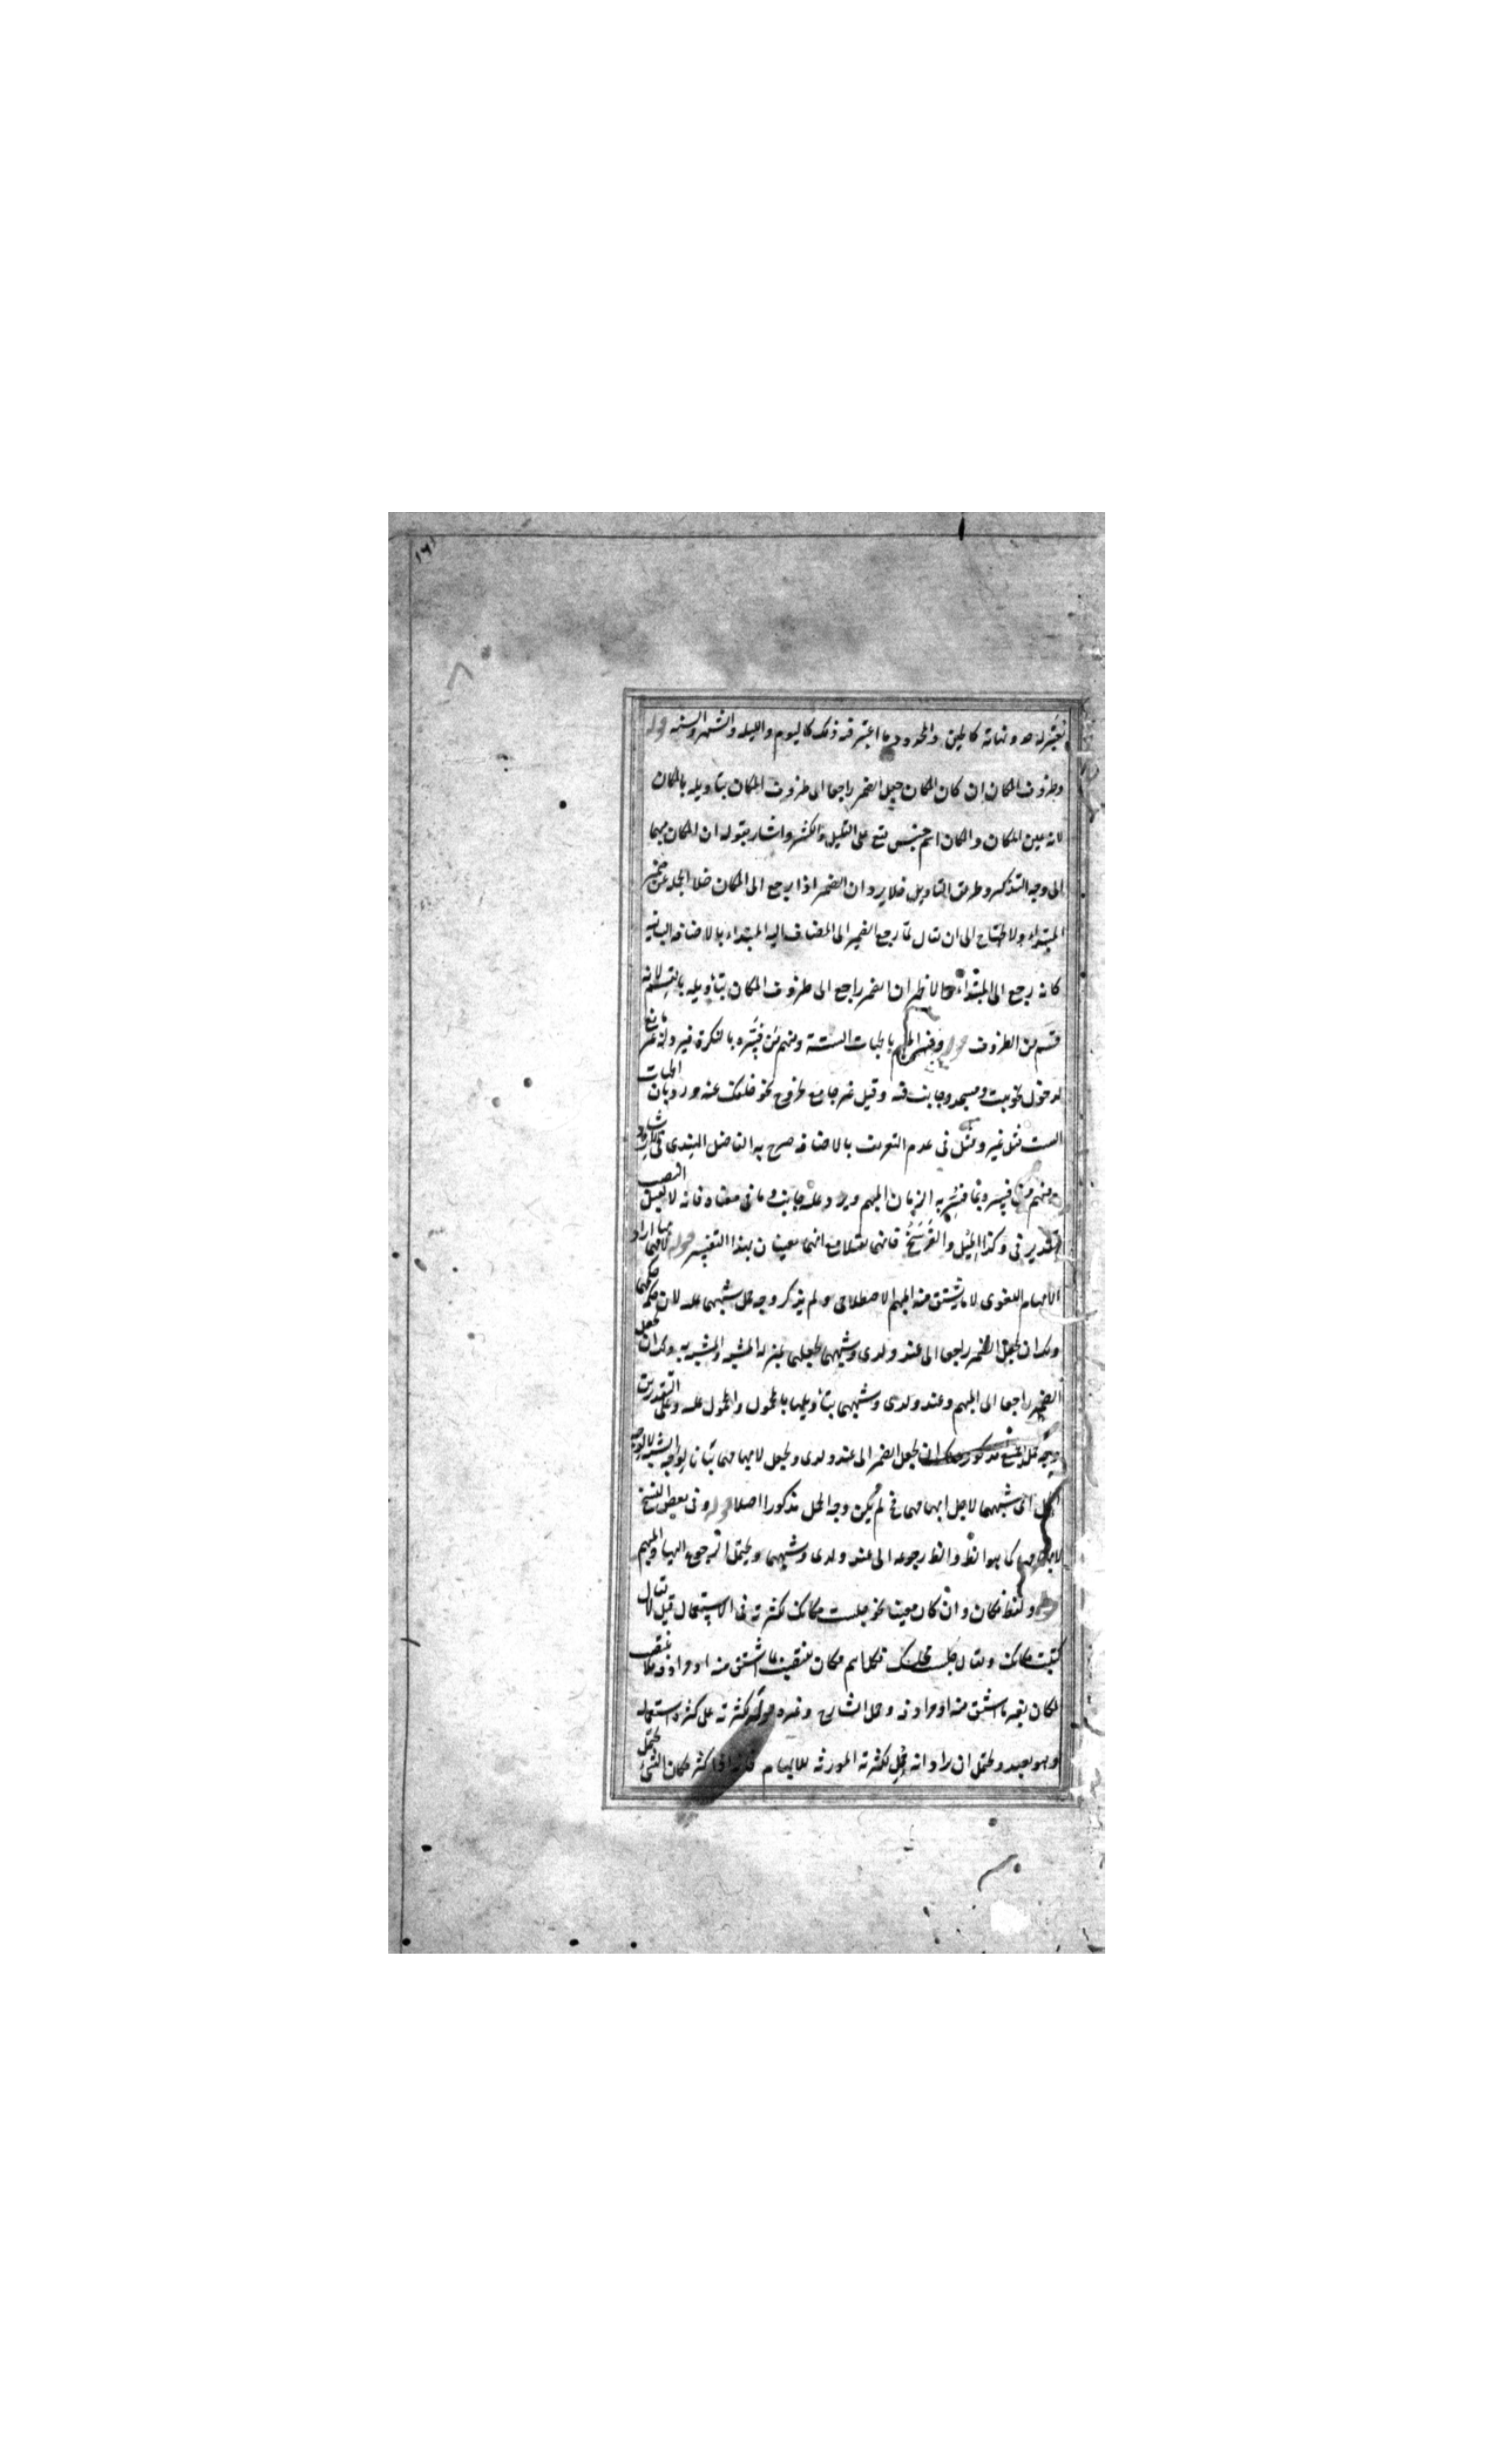 ١٦١
يعتبر له حد ونهاية كالحين والمحدود ما اعتبر فيه ذلك كاليوم والليلة والشهر والسنة قوله
وظروف المكان ان كان المكان جعل الضمير راجعا الى ظروف المكان بتاويله بالمكان
لانه عين المكان والمكان اسم جنس يقع على القليل والكثير واشار بقوله ان المكان مبهما
الى وجه التذكير وطريق التاويل فلا يرد ان الضمير اذا يرجع الى المكان خلا الجملة عن ضمير
المبتداء ولا يحتاج الى ان يقال لما رجع الضمير الى المضاف اليه المبتداء بالاضافة البيانية
كانه رجع الى المبتداء والاظهر ان الضمير راجع الى ظروف المكان بتأويله بالقسم لانه
قسم من الظروف قوله وفسر المبهم بالجهات الستة ومنهم من فسّره بالنكرة فيرد انه غير مانع
لدخول نحو بيت ومسجد وجانب فيه وقيل غير جامع لخروج نحو خلفك عنه ورد بان الجهات
الست مثل غير ومثل في عدم التعريف بالاضافة صرح به الفاضل الهندى في
ومنهم من فسره بما فسر به الزمان المبهم ويرد عليه جانب وما في معناه فانه لا يقبل النصب
بتقدير في وكذا الميل والفَرسَخُ فانهما يقبلان مع انهما معينان بهذا التفسير قوله لابهامهما اراد
الابهام اللغوى لا ما يشتق منه المبهم الاصطلاحى ولم يذكر وجه حمل شبههما عليه لان حكمه حكمهما
ويمكن ان يجعل الضمير راجعا الى عند ولدى وشبههما بجعلهما بمنزلة المشبه والمشبه به ويمكن ان يجعل
الضمير راجعا الى المبهم وعند ولدى وشبههما بتأويلهما بالمحمول والمحمول عليه وعلى التقديرين
وجه حمل الجميع مذكور ويمكن ان يجعل الضمير الى عند ولدى ويجعل لابهامهما بيانا لوجه الشبه لا لوجه
الحمل اى شبههما لاجل ابهامهما فح لم يكن وجه الحمل مذكورا اصلا قوله وفي بعض النسخ
لابهامها كما هو الظ والظ رجوعه الى عند ولدى وشبههما ويحتمل الرجوع اليها والمبهم
قوله ولفظ مكان وان كان معينا نحو جلست مكانك لكثرته في الاستعمال قيل لا يقال
كتبت مكانك ويقال جلست مجلسك فكل اسم مكان ينتصب بما اشتق منه او مرادفه فلا ينتصب
المكان بغير ما اشتق منه او مرادفه وحمل الشارح وغيره قوله لكثرته على كثرة استعماله
وهو بعيد ويحتمل ان يراد انه حمل لكثرته المورثة للابهام فانه اذا كثر مكان الشئ يحتمل